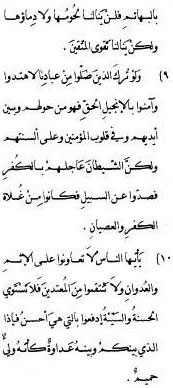 بالبهائم فلن ينالنا لحومها ولا دماؤها
ولكن ينالنا تقوى المتقين .
(٩) ولو ترك الذين ضلوا من عبادنا لاهتدوا
وآمنوا بالإنجيل الحق فهو من حولهم وبين
أيديهم وفي قلوب المؤمنين وعلى ألسنتهم
ولكن الشيطان عاجلهم بالكفر
فصدوا عن السبيل فكانوا من غلاة
الكفر والعصيان .
(١٠) يأيها الناس لا تعاونوا على الإثم
والعدوان ولا تنتقموا من المعتدين فلا تستوي
الحسنة والسيئة إدفعوا بالتي هي أحسن فإذا
الذي بينكم وبينه عداوة كأنه ولي
حميم .